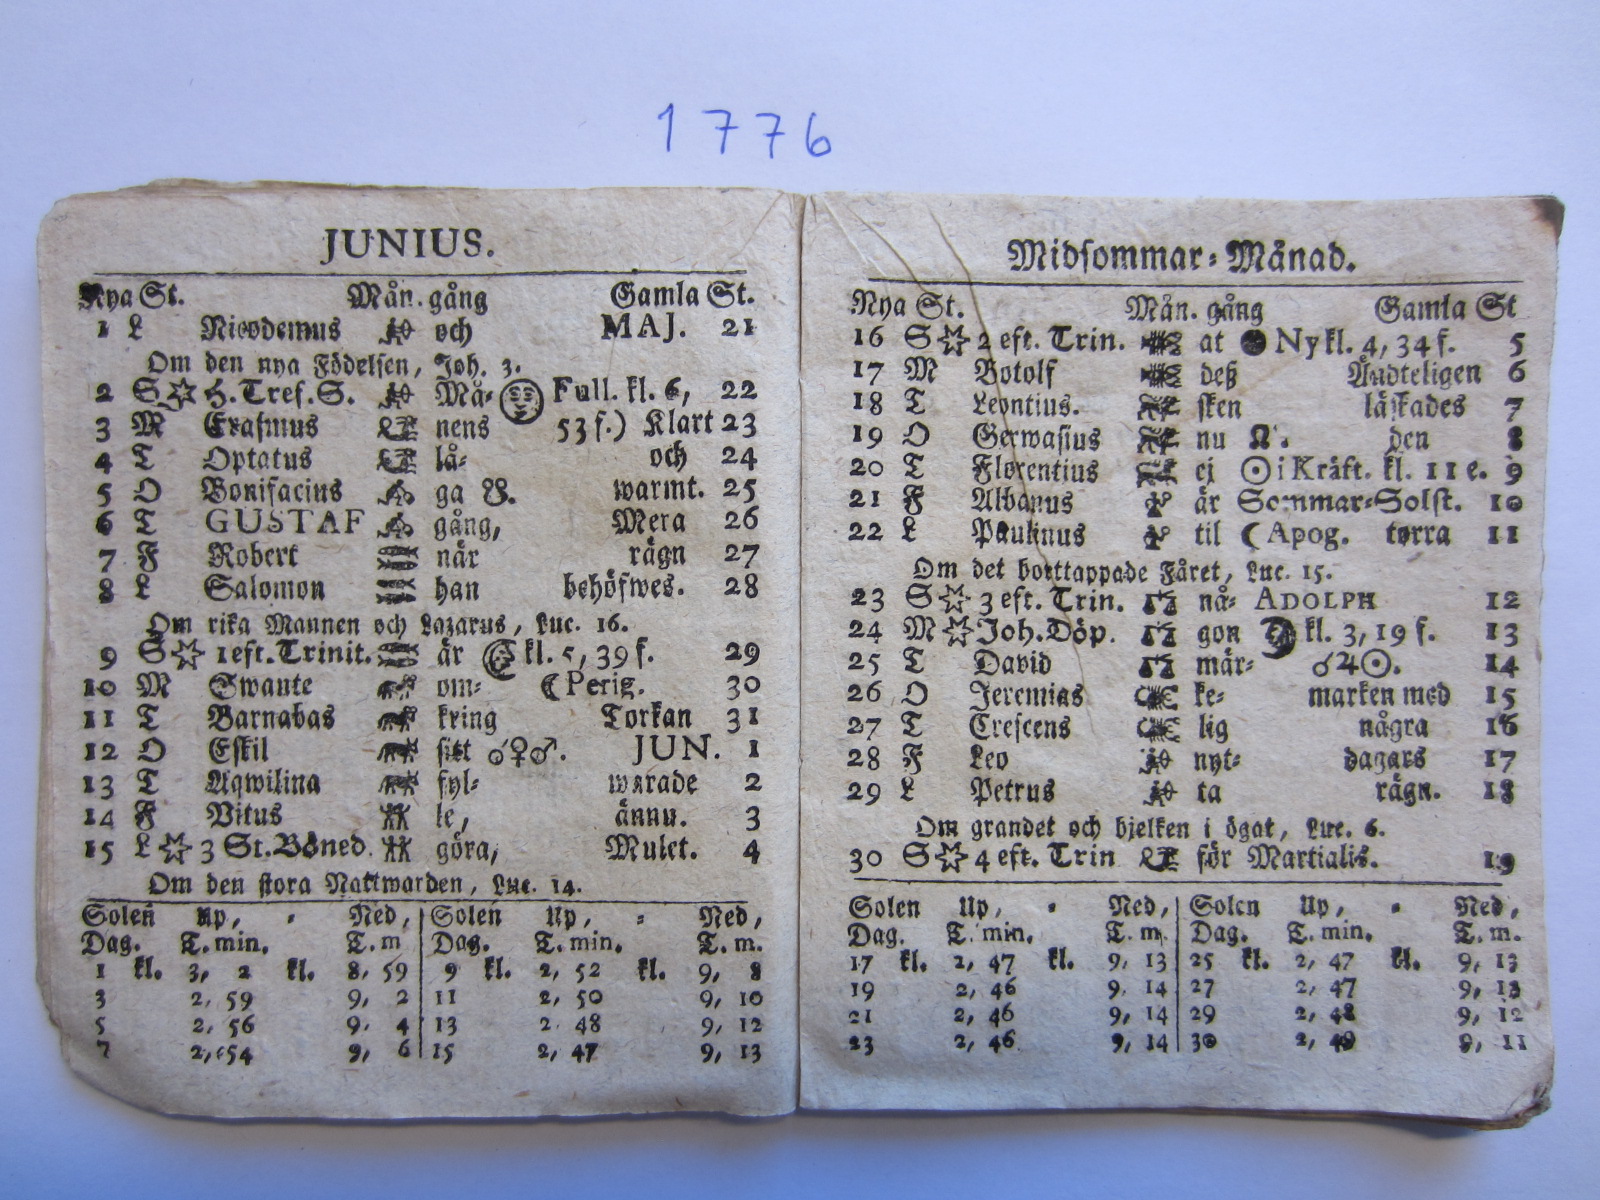 1776
JUNIUS.
Nya St. Mån. gång Gamla St.
1 L Nicodemus och MAJ. 21
Om den nya Födelsen, Joh. 3.
2 S H. Tref. S. Må- Full. kl. 6, 22
3 M Erasmus nens 53 f.) Klart 23
4 T Optatus lå- och 24
5 O Bonifacius ga ☋. warmt. 25
6 T GUSTAF gång, Mera 26
7 F Robert när rägn 27
8 L Salomon han behöfwes. 28
Om rika Mannen och Lazarus, Luc. 16.
9 S 1 eft. Trinit. är kl. 5, 39 f. 29
10 M Swante om- ☾ Perig. 30
11 T Barnabas kring Torkan 31
12 O Eskil sitt ☌♀♂. JUN. 1
13 T Aqwilina fyl- warade 2
14 F Vitus le, ännu. 3
15 L 3 St. Böned. göra, Mulet. 4
Om den stora Nattwarden, Luc. 14.
Solen Up, - Ned, Solen Up, - Ned,
Dag. T. min. T. m Dag. T. min. T. m.
1 kl. 3, 2 kl. 8, 59 9 kl. 2, 52 kl. 9, 8
3 2, 59 9, 2 11 2, 50 9, 10
5 2, 56 9, 4 13 2, 48 9, 12
7 2, 54 9, 6 15 2, 47 9, 13
Midsommar-Månad.
Nya St. Mån. gång Gamla St
16 S 2 eft. Trin. at Ny kl. 4, 34 f. 5
17 M Botolf deß Ändteligen 6
18 T Leontius. sken läskades 7
19 O Gerwasius nu ☊. den 8
20 T Florentius ej ☉ i Kräft. kl. 11 e. 9
21 F Albanus är Sommar-Solst. 10
22 L Paulinus til ☾ Apog. torra 11
Om det borttappade Fåret, Luc. 15.
23 S 3 eft. Trin. nå- ADOLPH 12
24 M Joh. Döp. gon kl. 3, 19 f. 13
25 T David mär- ☌♃☉. 14
26 O Jeremias ke- marken med 15
27 T Crescens lig några 16
28 F Leo nyt- dagars 17
29 L Petrus ta rägn. 18
Om grandet och bjelken i ögat, Luc. 6.
30 S 4 eft. Trin för Martialis. 19
Solen Up, - Ned, Solen Up, - Ned,
Dag. T. min. T. m. Dag. T. min. T. m.
17 kl. 2, 47 kl. 9, 13 25 kl. 2, 47 kl. 9, 13
19 2, 46 9, 14 27 2, 47 9, 13
21 2, 46 9, 14 29 2, 48 9, 12
23 2, 46 9, 14 30 2, 49 9, 11